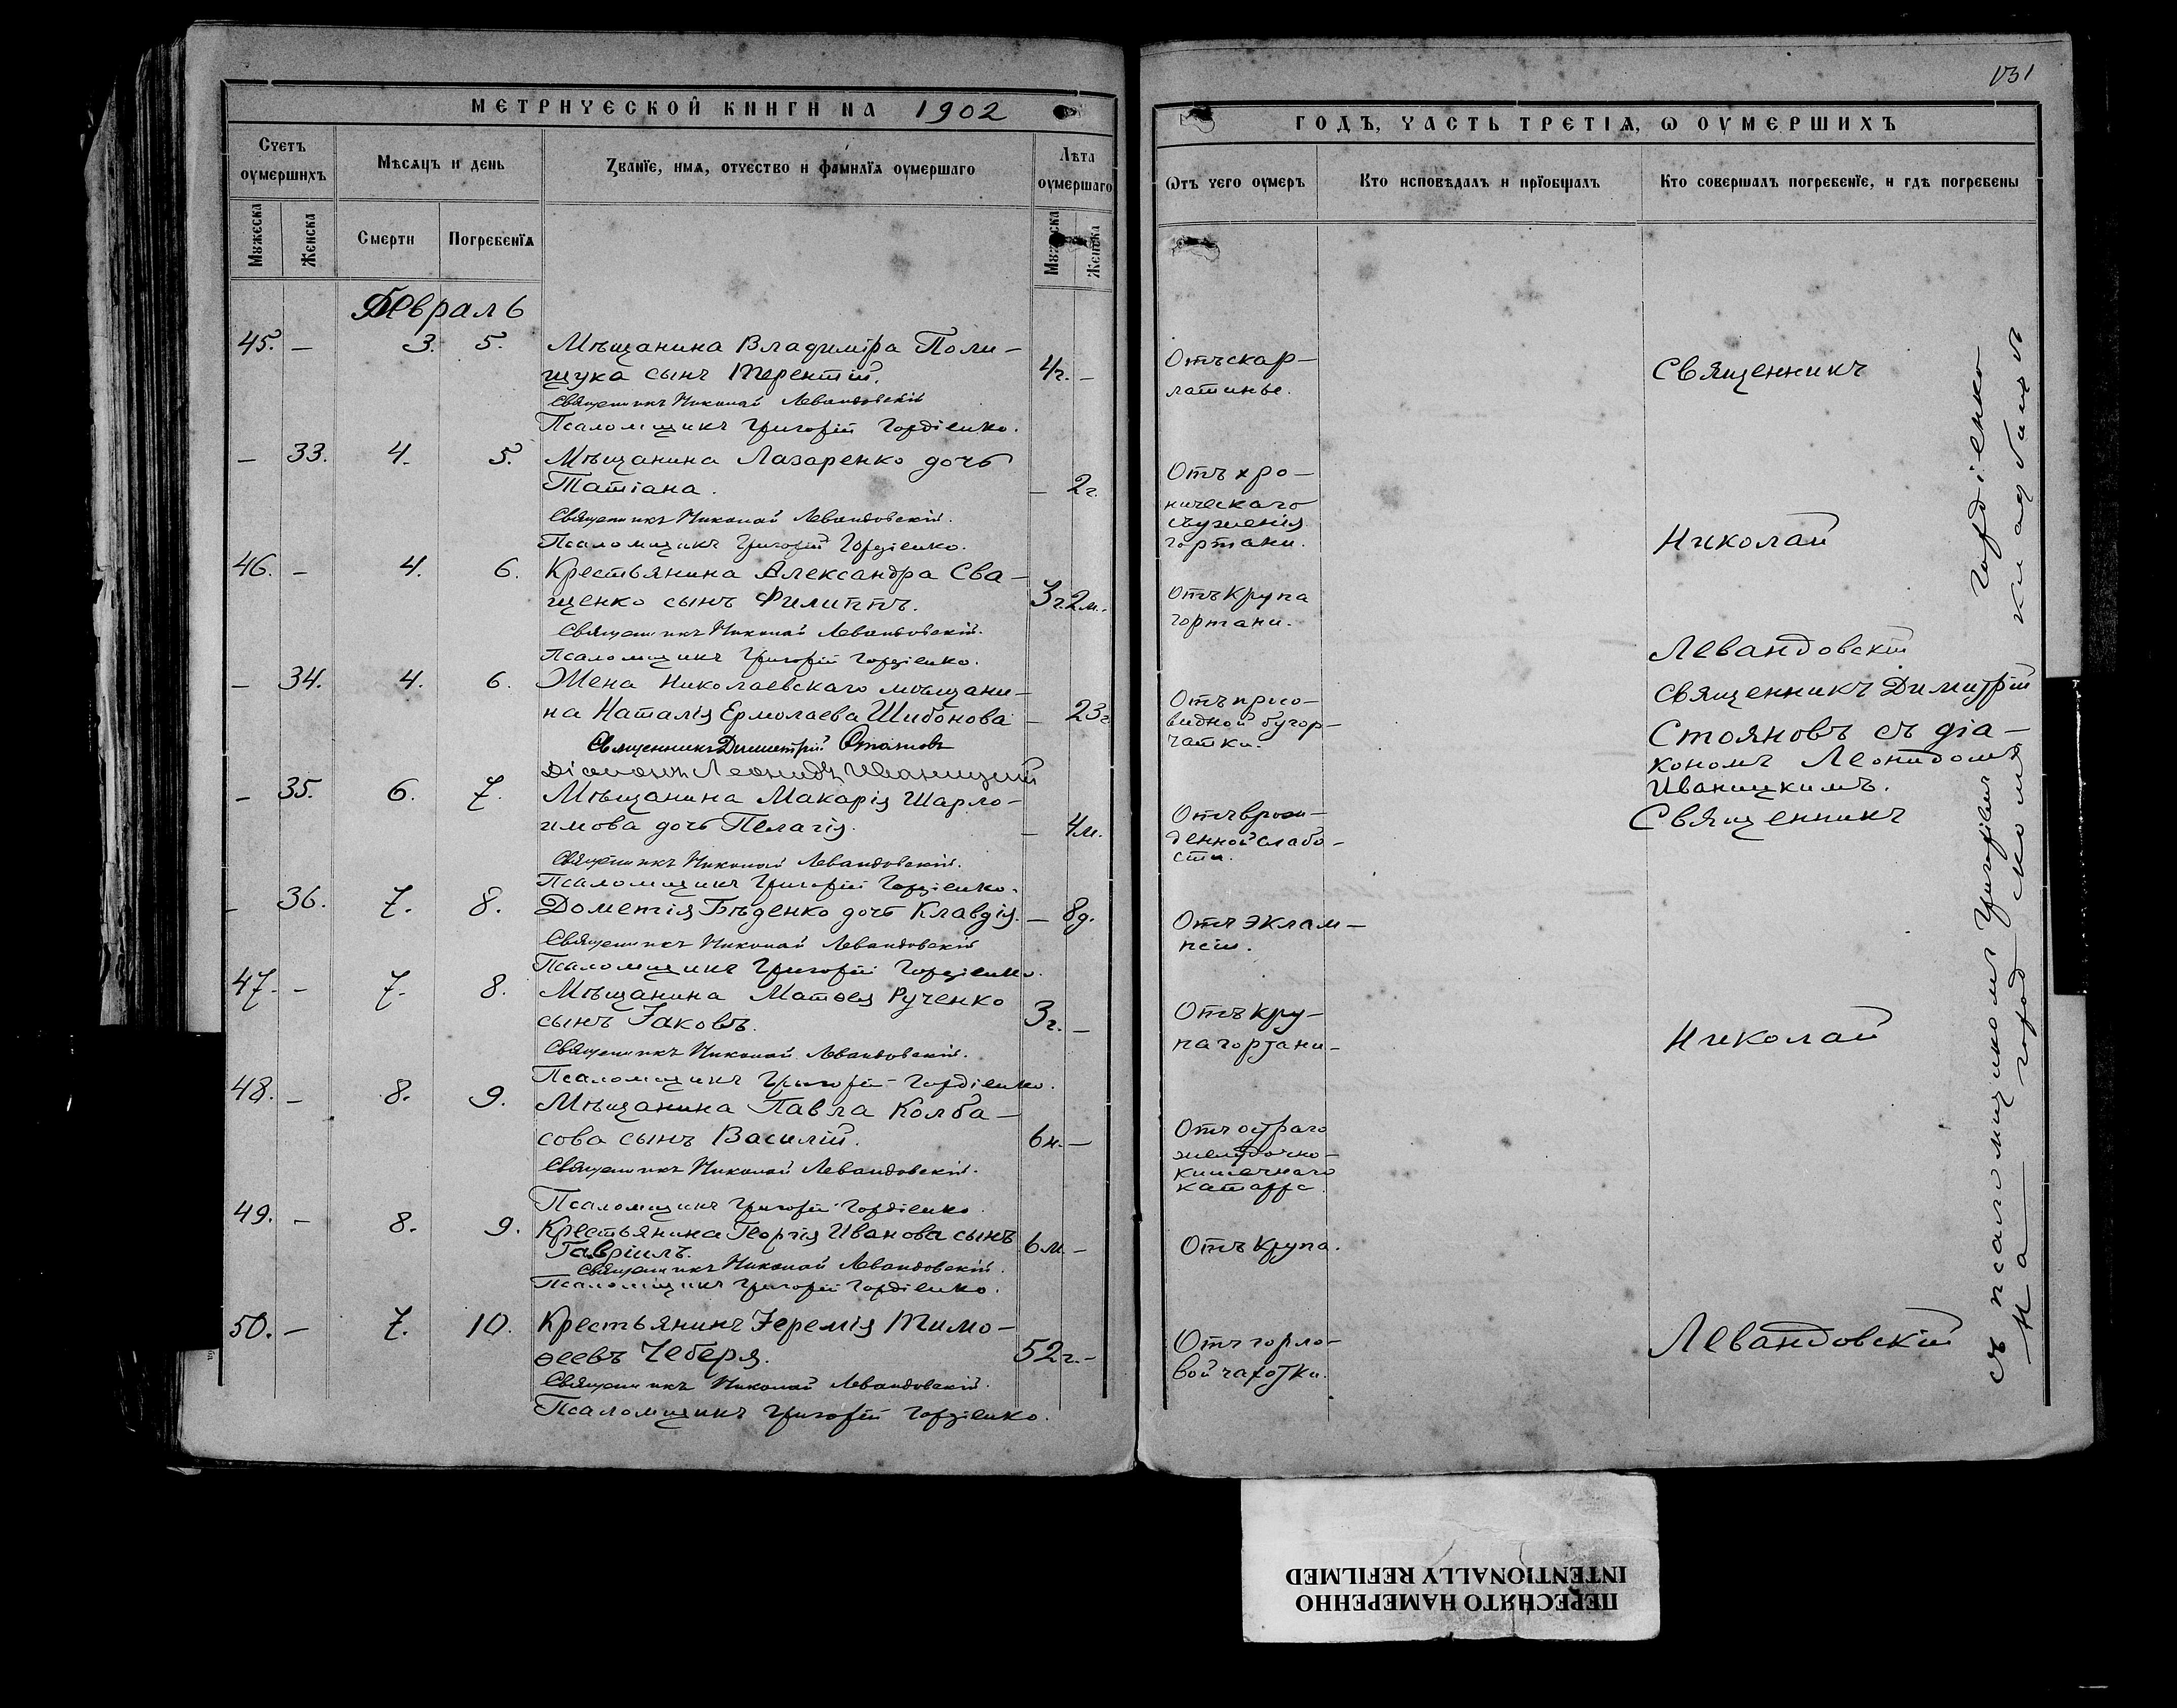 МЕТРИЧЕСКОЙ КНИГИ НА 1902
Счетъ оумершихъ
Мѣсяцъ и день
Званїе, имя, отчество и фамилїя оумершаго
Лѣта оумершаго
Мужеска
Женска
Смерти
Погребенїя
Мужеска
Женска
Февраль
45. — 3. 5. Мѣщанина Владиміра Поли-
щука сынъ Терентій. 4г. —
Священникъ Николай Левандовскій
Псаломщикъ Григорій Гордіенко.
— 33. 4. 5. Мѣщанина Лазаренко дочь
Татіана. — 2г.
Священникъ Николай Левандовскій.
Псаломщикъ Григорій Гордіенко.
46. — 4. 6. Крестьянина Александра Сва-
щенко сынъ Филиппъ. 3г.2м.
Священникъ Николай Левандовскій.
Псаломщикъ Григорій Гордіенко.
— 34. 4. 6. Жена Николаевскаго мѣщани-
на Наталія Ермолаева Шибонова — 23г.
Священникъ Димитрій Стояновъ
Діаконъ Леонидъ Иваницкій
— 35. 6. 7. Мѣщанина Макарія Шарло-
имова дочь Пелагія. — 4м.
Священникъ Николай Левандовскій.
Псаломщикъ Григорій Гордіенко.
— 36. 7. 8. Дометія Бѣденко дочь Клавдія. — 8д.
Священникъ Николай Левандовскій
Псаломщикъ Григорій Гордіенко.
47. — 7. 8. Мѣщанина Матѳея Рученко
сынъ Іаковъ. 3г. —
Священникъ Николай Левандовскій.
Псаломщикъ Григорій Гордіенко.
48. — 8. 9. Мѣщанина Павла Колба-
сова сынъ Василій. 6н. —
Священникъ Николай Левандовскій.
Псаломщикъ Григорій Гордіенко.
49. — 8. 9. Крестьянина Георгія Иванова сынъ
Гавріилъ. 6м. —
Священникъ Николай Левандовскій.
Псаломщикъ Григорій Гордіенко.
50. — 7. 10. Крестьянинъ Іеремія Тимо-
ѳеевъ Чеберя. 52г. —
Священникъ Николай Левандовскій.
Псаломщикъ Григорій Гордіенко.
131
ГОДЪ, ЧАСТЬ ТРЕТІЯ, Ѡ ОУМЕРШИХЪ
Ѿтъ чего оумеръ
Кто исповѣдалъ и прїобщалъ
Кто совершалъ погребенїе, и гдѣ погребены
Отъ скар-
латины.
Отъ хро-
ническаго
съуженія
гортани.
Отъ крупа
гортани.
Отъ просо-
видной бугор-
чатки.
Отъ врож-
денной слабо-
сти.
Отъ эклам-
псіи.
Отъ кру-
па гортани-
Отъ остраго
желудочно-
кишечнаго
катарра.
Отъ крупа.
Отъ горло-
вой чахотки.
Священникъ
Николай
Левандовскій
Священникъ Димитрій
Стояновъ съ діа-
кономъ Леонидомъ
Иваницкимъ.
Священникъ
Николай
Левандовскій
съ псаломщикомъ Григоріемъ Гордіенко
На городскомъ кладбищѣ
ПЕРЕСНЯТО НАМЕРЕННО
INTENTIONALLY REFILMED